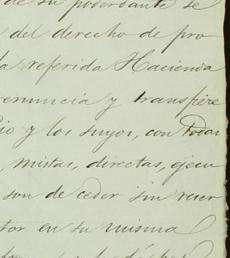 de su poderdante se
del derecho de pro
la referida Hacienda
renuncia y transfiere
io y los suyos, con todas
, mistas, directas, ejecu
son de ceder sin reser
tor en su misma